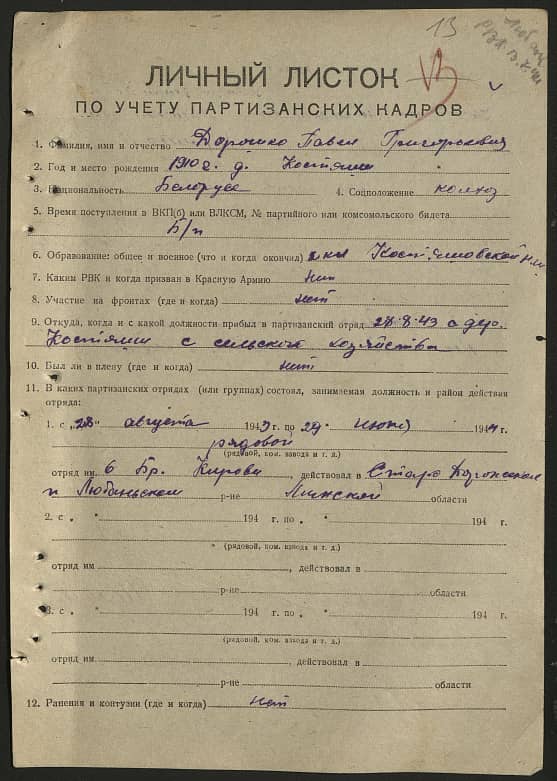 13
Любан
РВК
ЛИЧНЫЙ ЛИСТОК
ПО УЧЕТУ ПАРТИЗАНСКИХ КАДРОВ
1. Фамилия, имя и отчество Дорошко Павел Григорьевич
2. Год и место рождения 1910 г. д. Костяши
3. Национальность Белорус 4. Соцположение колхоз
5. Время поступления в ВКП(б) или ВЛКСМ, № партийного или комсомольского билета
Б/п
6. Образование: общее и военное (что и когда окончил) 2 кл Костяшовской
7. Каким РВК и когда призван в Красную Армию нет
8. Участие на фронтах (где и когда) нет
9. Откуда, когда и с какой должности прибыл в партизанский отряд 28.8.43 с дер.
Костяши с сельского хозяйства
10. Был ли в плену (где и когда) нет
11. В каких партизанских отрядах (или группах) состоял, занимаемая должность и район действия
отряда:
1. с „28" августа 1943 г. по 29 июня 1944 г.
рядовой
(рядовой, ком. взвода и т. д.)
отряд им. 6 Бр. Кирова, действовал в Старо Дорожском
и Любаньском р-не Минской области
2. с " 194 г. по " 194 г.
(рядовой, ком. взвода и т. д.)
отряд им , действовал в
р-не области
3. с " 194 г. по " 194 г.
(рядовой, ком. взвода и т. д.)
отряд им. , действовал в
р-не области
12. Ранения и контузии (где и когда) нет